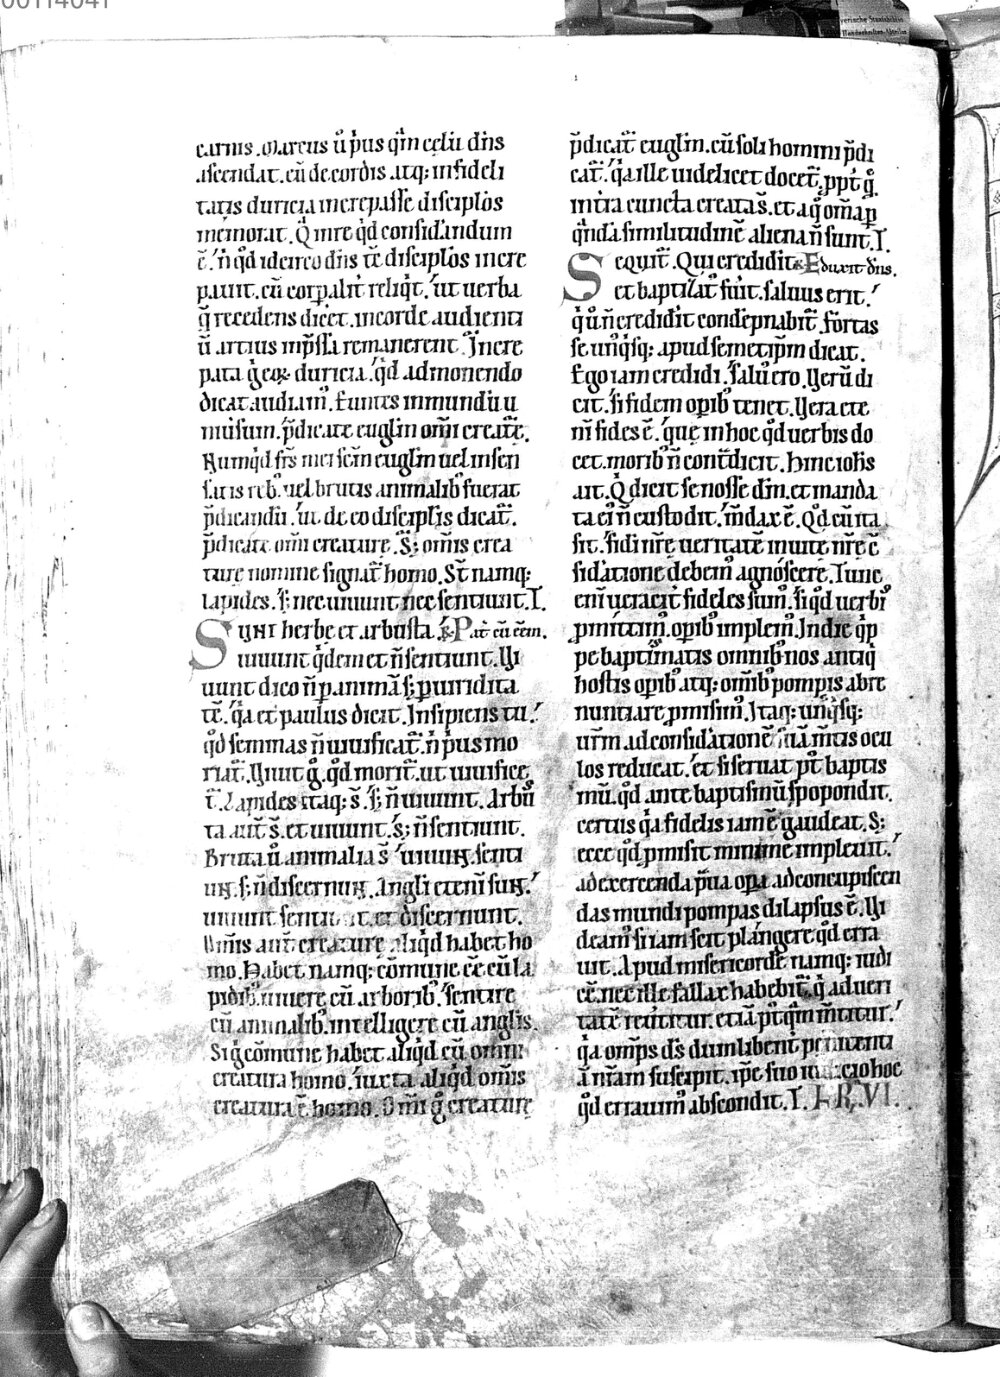 00114041
yerische Staatsbiblio
Handschriften-Abteilun
carnis. Marcus ū p̄us q̄m celū dn̄s
ascendat. cū de cordis atq; infideli
tatis duricia increpasse discip̄los
memorat. Q in re qd considandum
ē. n̄ qd idcirco dn̄s tc̄ discip̄los incre
pauit. cū corpalit reliqt. ut uerba
q̄ recedens dicet. in corde audienti
ū artius imp̄ssa remanerent. Incre
pata gͥ eoꝝ duricia. qd admonendo
dicat audiam̄. Euntes in mundū u
niu̇sum. p̄dicate eug̅lm om̅i creat̄e.
Numqd fr̄s mei sc̄m eug̅lm uel insen
satis reb; uel brutis animalib; fuerat
p̄dicandū. ut de eo discip̄lis dicat̄.
p̄dicate om̅i creature. S; om̅is crea
ture nomine signat̄ homo. St̄ namq;
lapides. s; nec uiuunt nec sentiunt. T.
SUNT herbe et arbusta. ℟ Pat̄ cū eēm.
uiuunt qdem et n̄ sentiunt. Ui
uunt dico n̄ p animā s; p uiridita
tē. qa et paulus dicit. Insipiens tu.
qd seminas n̄ uiuificat̄. n̄ p̄us mo
riat̄. Uiuit gͦ. qd morit̄. ut uiuifice
t̄. Lapides itaq; s̄. s; n̄ uiuunt. Arbu
ta aut̄ s̄. et uiuunt. s; n̄ sentiunt.
Bruta ū animalia s̄ uiuunt. senti
unt. s; n̄ discernunt. Angli etenī sunt.
uiuunt sentiunt. et discernunt.
Om̅is aut̄ creature aliqd habet ho
mo. Habet namq; cōmune ēē cū la
pidib; uiuere cū arborib; sentire
cū animalib; intelligere cū anglis.
Si gͦ cōmune habet aliqd cū omni
creatura homo. iuxta aliqd om̅is
creatura ē homo. Om̅i gͦ creature
p̄dicat̄ eug̅lm. cū soli homini p̄di
cat̄. qa ille uidelicet docet̄. ppt̄ q̄
in t̄ra cuncta creata s̄. et a q om̅ia p
qndā similitudinē aliena n̄ sunt. T.
Sequit̄. Qui crediderit ℟ Eduxit dn̄s.
et baptizat̄ fuīt. saluus erit.
q ū n̄ crediderit condēpnabit̄. fortas
se unqsq; apud semetip̄m dicat.
Ego iam credidi. saluͦ ero. Uerū di
cit. si fidem opib; tenet. Uera ete
nī fides ē. que in hoc qd uerbis do
cet. morib; n̄ cont̄dicit. Hinc ioh̄s
ait. Q dicit se nosse dm̄. et manda
ta ei n̄ custodit. m̄dax ē. Qd cū ita
sit. fidi nr̄e ueritatē in uite nr̄e c̄
sidatione debem̄ agnoscere. Tunc
enī ueracit̄ fideles sum̄. si qd uerbis
pmittim̄. opib; implem̄. In die qp
pe baptimatis omnib; nos antiq
hostis opib; atq; om̅ib; pompis abre
nuntiare pmisim̄. Itaq; unqsq;
ur̄m ad considationē suā m̄tis ocu
los reducat. et si seruat pt̄ baptis
mū. qd ante baptismū spopondit.
certus qa fidelis iam ē gaudeat. S;
ecce qd pmisit minime impleuit.
ad exercenda p̄ua opa ad concupiscen
das mundi pompas dilapsus ē. Ui
deam̄ si iam scit plangere qd erra
uit. Apud misericordē namq; iudi
cē. nec ille fallax habebit̄. q ad ueri
tatē reūtitur. etiā ptqm m̄titur.
qa om̅ps ds̄ dum libent̄ penitenti
ā nr̄am suscipit. ipe suo iudicio hoc
qd errauim̄ abscondit. T. L R. VI.